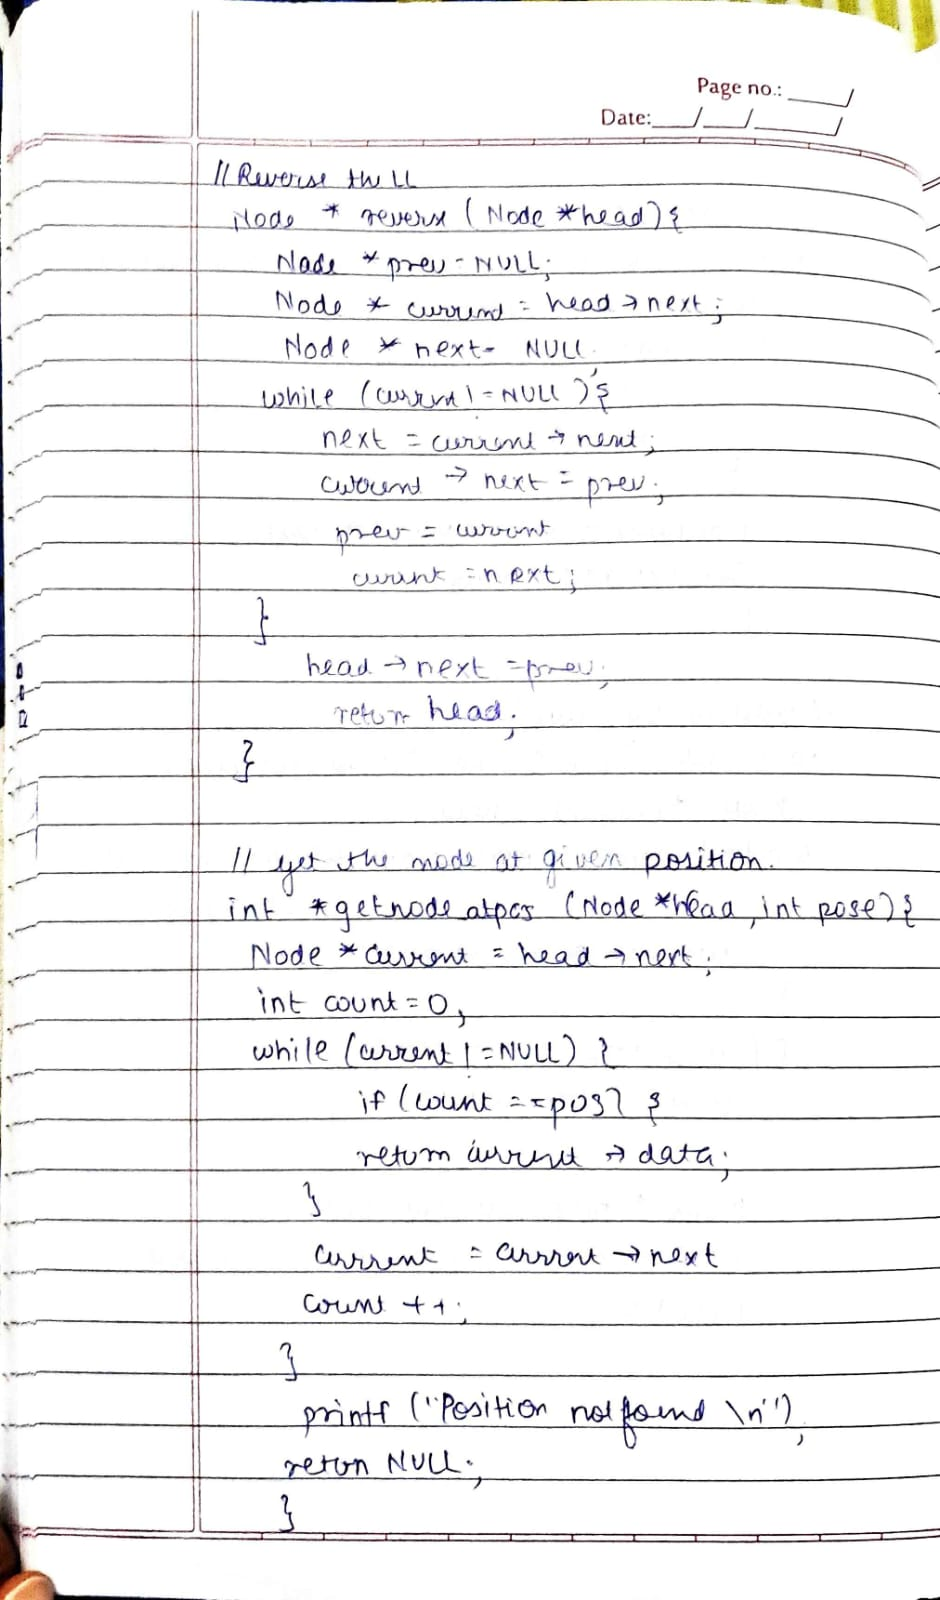 Page no.: ___/
Date: __/__/____/
// Reverse the LL
Node * reverse ( Node *head ) {
Node * prev = NULL;
Node * current = head → next ;
Node * next = NULL
while (current != NULL ) {
next = current → next ;
current → next = prev ;
prev = current
current = next ;
}
head → next = prev ;
return head ;
}
// get the node at given position.
int * getnode_atpos (Node *head, int pose) {
Node * current = head → next ;
int count = 0 ;
while (current != NULL) {
if (count == pos) {
return current → data ;
}
current = current → next
count ++ ;
}
printf ("Position not found \n") ;
return NULL ;
}